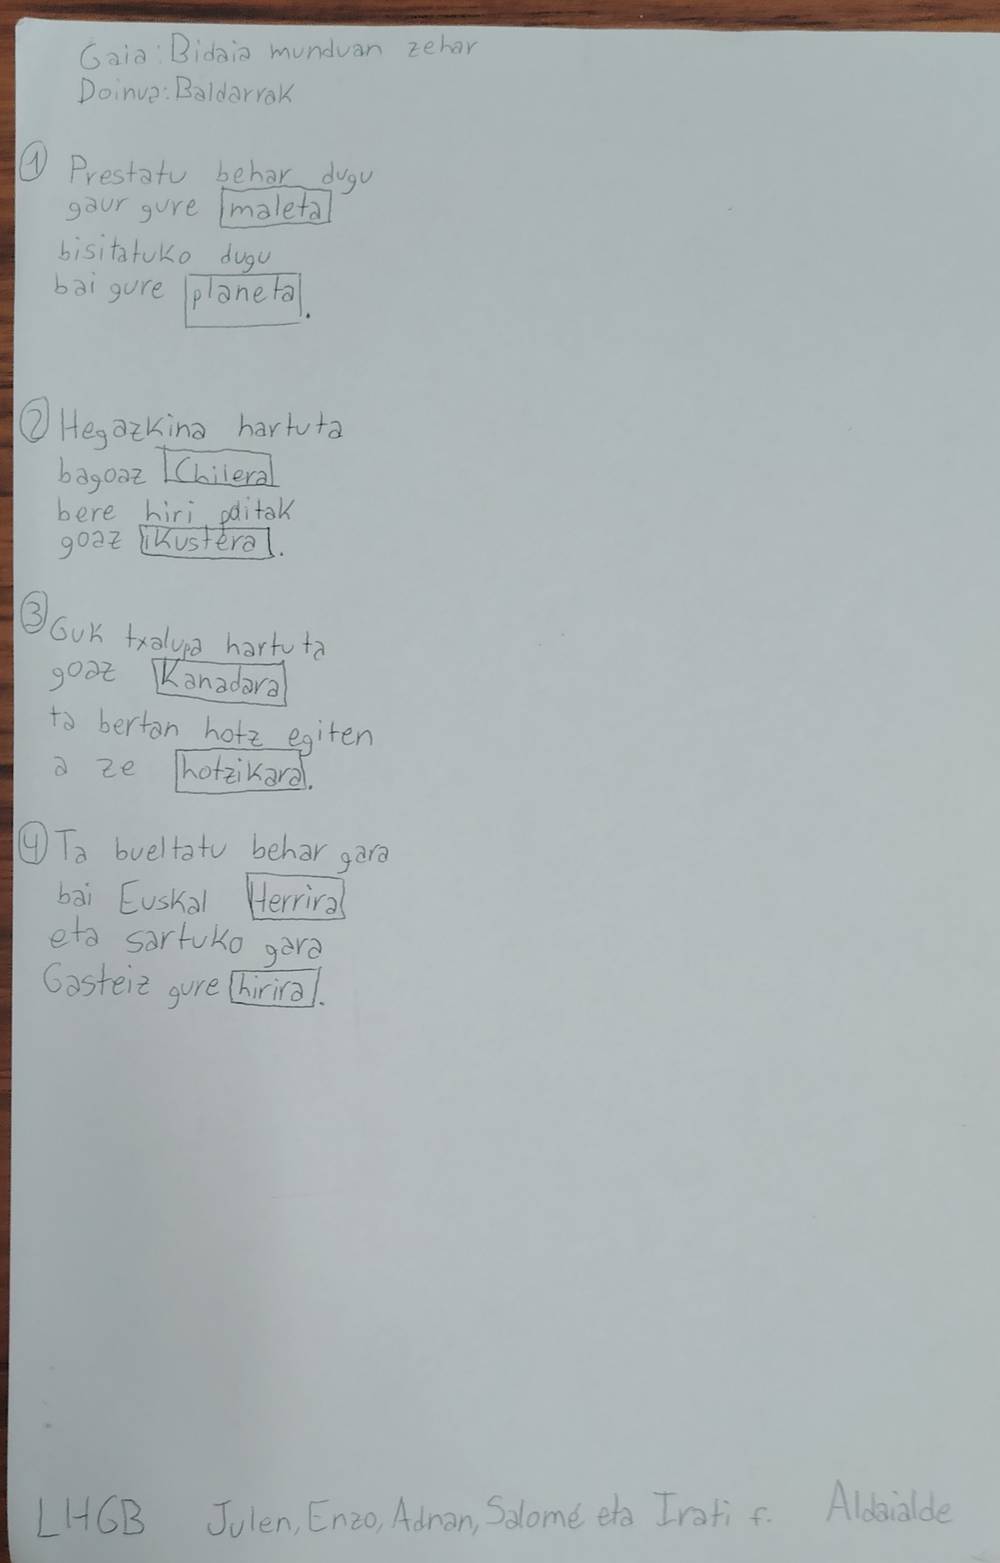 Gaia: Bidaia munduan zehar
Doinua: Baldarrak
① Prestatu behar dugu
gaur gure maleta
bisitatuko dugu
bai gure planeta.
② Hegazkina hartuta
bagoaz Chilera
bere hiri politak
goaz ikustera.
③ Guk txalupa hartuta
goaz Kanadara
ta bertan hotz egiten
a ze hotzikara.
④ Ta bueltatu behar gara
bai Euskal Herrira
eta sartuko gara
Gasteiz gure hirira.
LH6B Julen, Enzo, Adnan, Salomé eta Irati f. Aldaialde